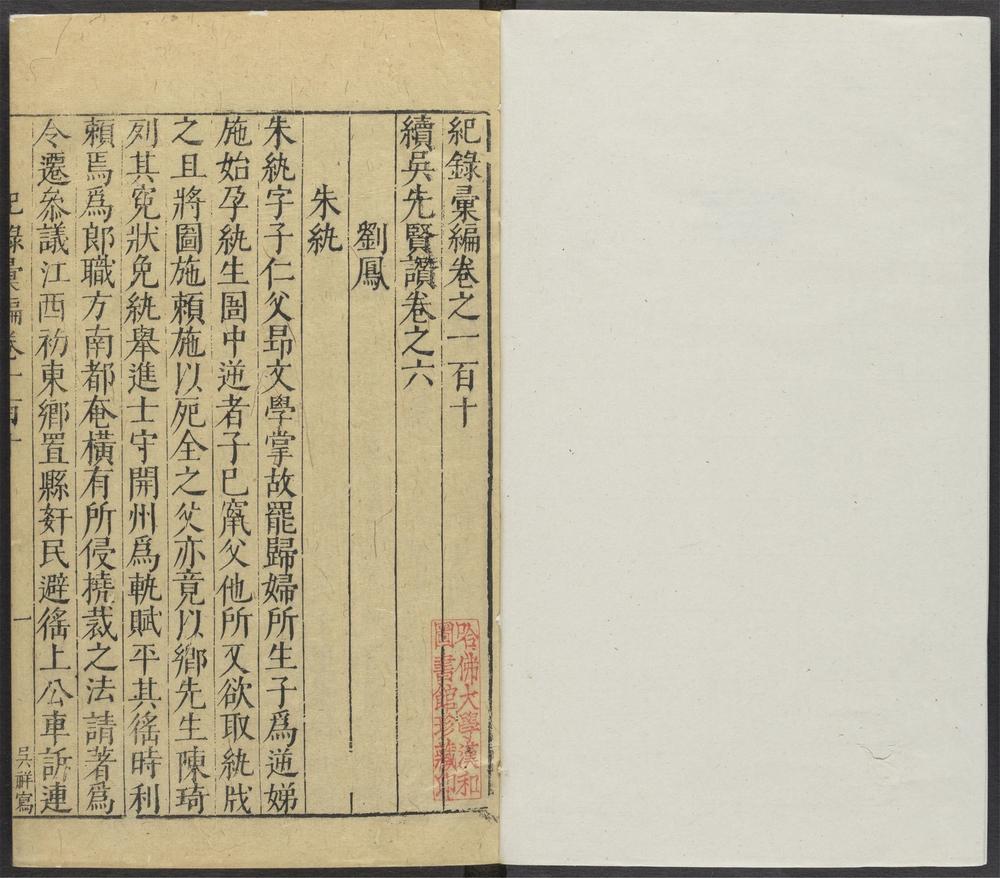 紀錄彙編卷之一百十
續吳先賢讚卷之六
劉鳳
朱紈
朱紈字子仁父昻文學掌故罷歸婦所生子爲逆娣
施始孕紈生圄中逆者子已竄父他所又欲取紈戕
之且將圖施賴施以死全之父亦竟以鄉先生陳琦
列其寃狀免紈舉進士守開州爲軌賦平其徭時利
賴焉爲郎職方南都奄橫有所侵撓裁之法請著爲
令遷叅議江西初東鄉置縣奸民避徭上公車訴連
紀錄彙編卷一百十
一
吳祥寫
哈佛大學漢和
圖書館珍藏印